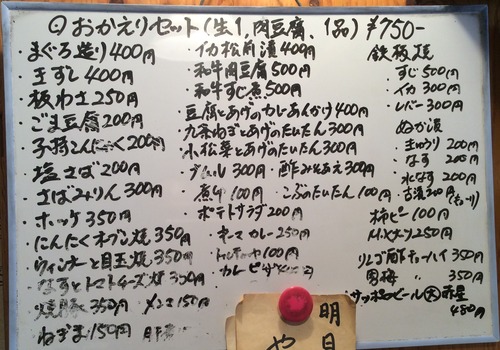 おかえりセット(生1,肉豆腐、1品)¥750-
・まぐろ造り400円
・玉すし400円
・板わさ250円
・ごま豆腐200円
・子持こんにゃく200円
・塩さば200円
・さばみりん300円
・ホッケ350円
・にんにくホイル焼350円
・ウィンナーと目玉焼350円
・なすとトマトチーズ焼350円
・焼豚350円 メンマ150円
・ねぎま150円
・イカ松前漬400円
・和牛肉豆腐500円
・和牛すじ煮500円
・豆腐とあげのカレーあんかけ400円
・九条ねぎとあげのたいたん300円
・小松菜とあげのたいたん300円
300円 ・酢みそあえ300円
100円 ・こぶのたいたん100円
・ポテトサラダ200円
・キーマカレー250円
100円
・カレーピザ
鉄板焼
・すじ500円
・イカ300円
・レバー300円
ぬか漬
・きゅうり200円
・なす200円
・水なす200円
・古漬200円(きゅーり)
・柿ピー100円
・Mixナッツ250円
・リンゴ酢チューハイ350円
・男梅〃350円
・サッポロビール(大)赤星
480円
明日
や